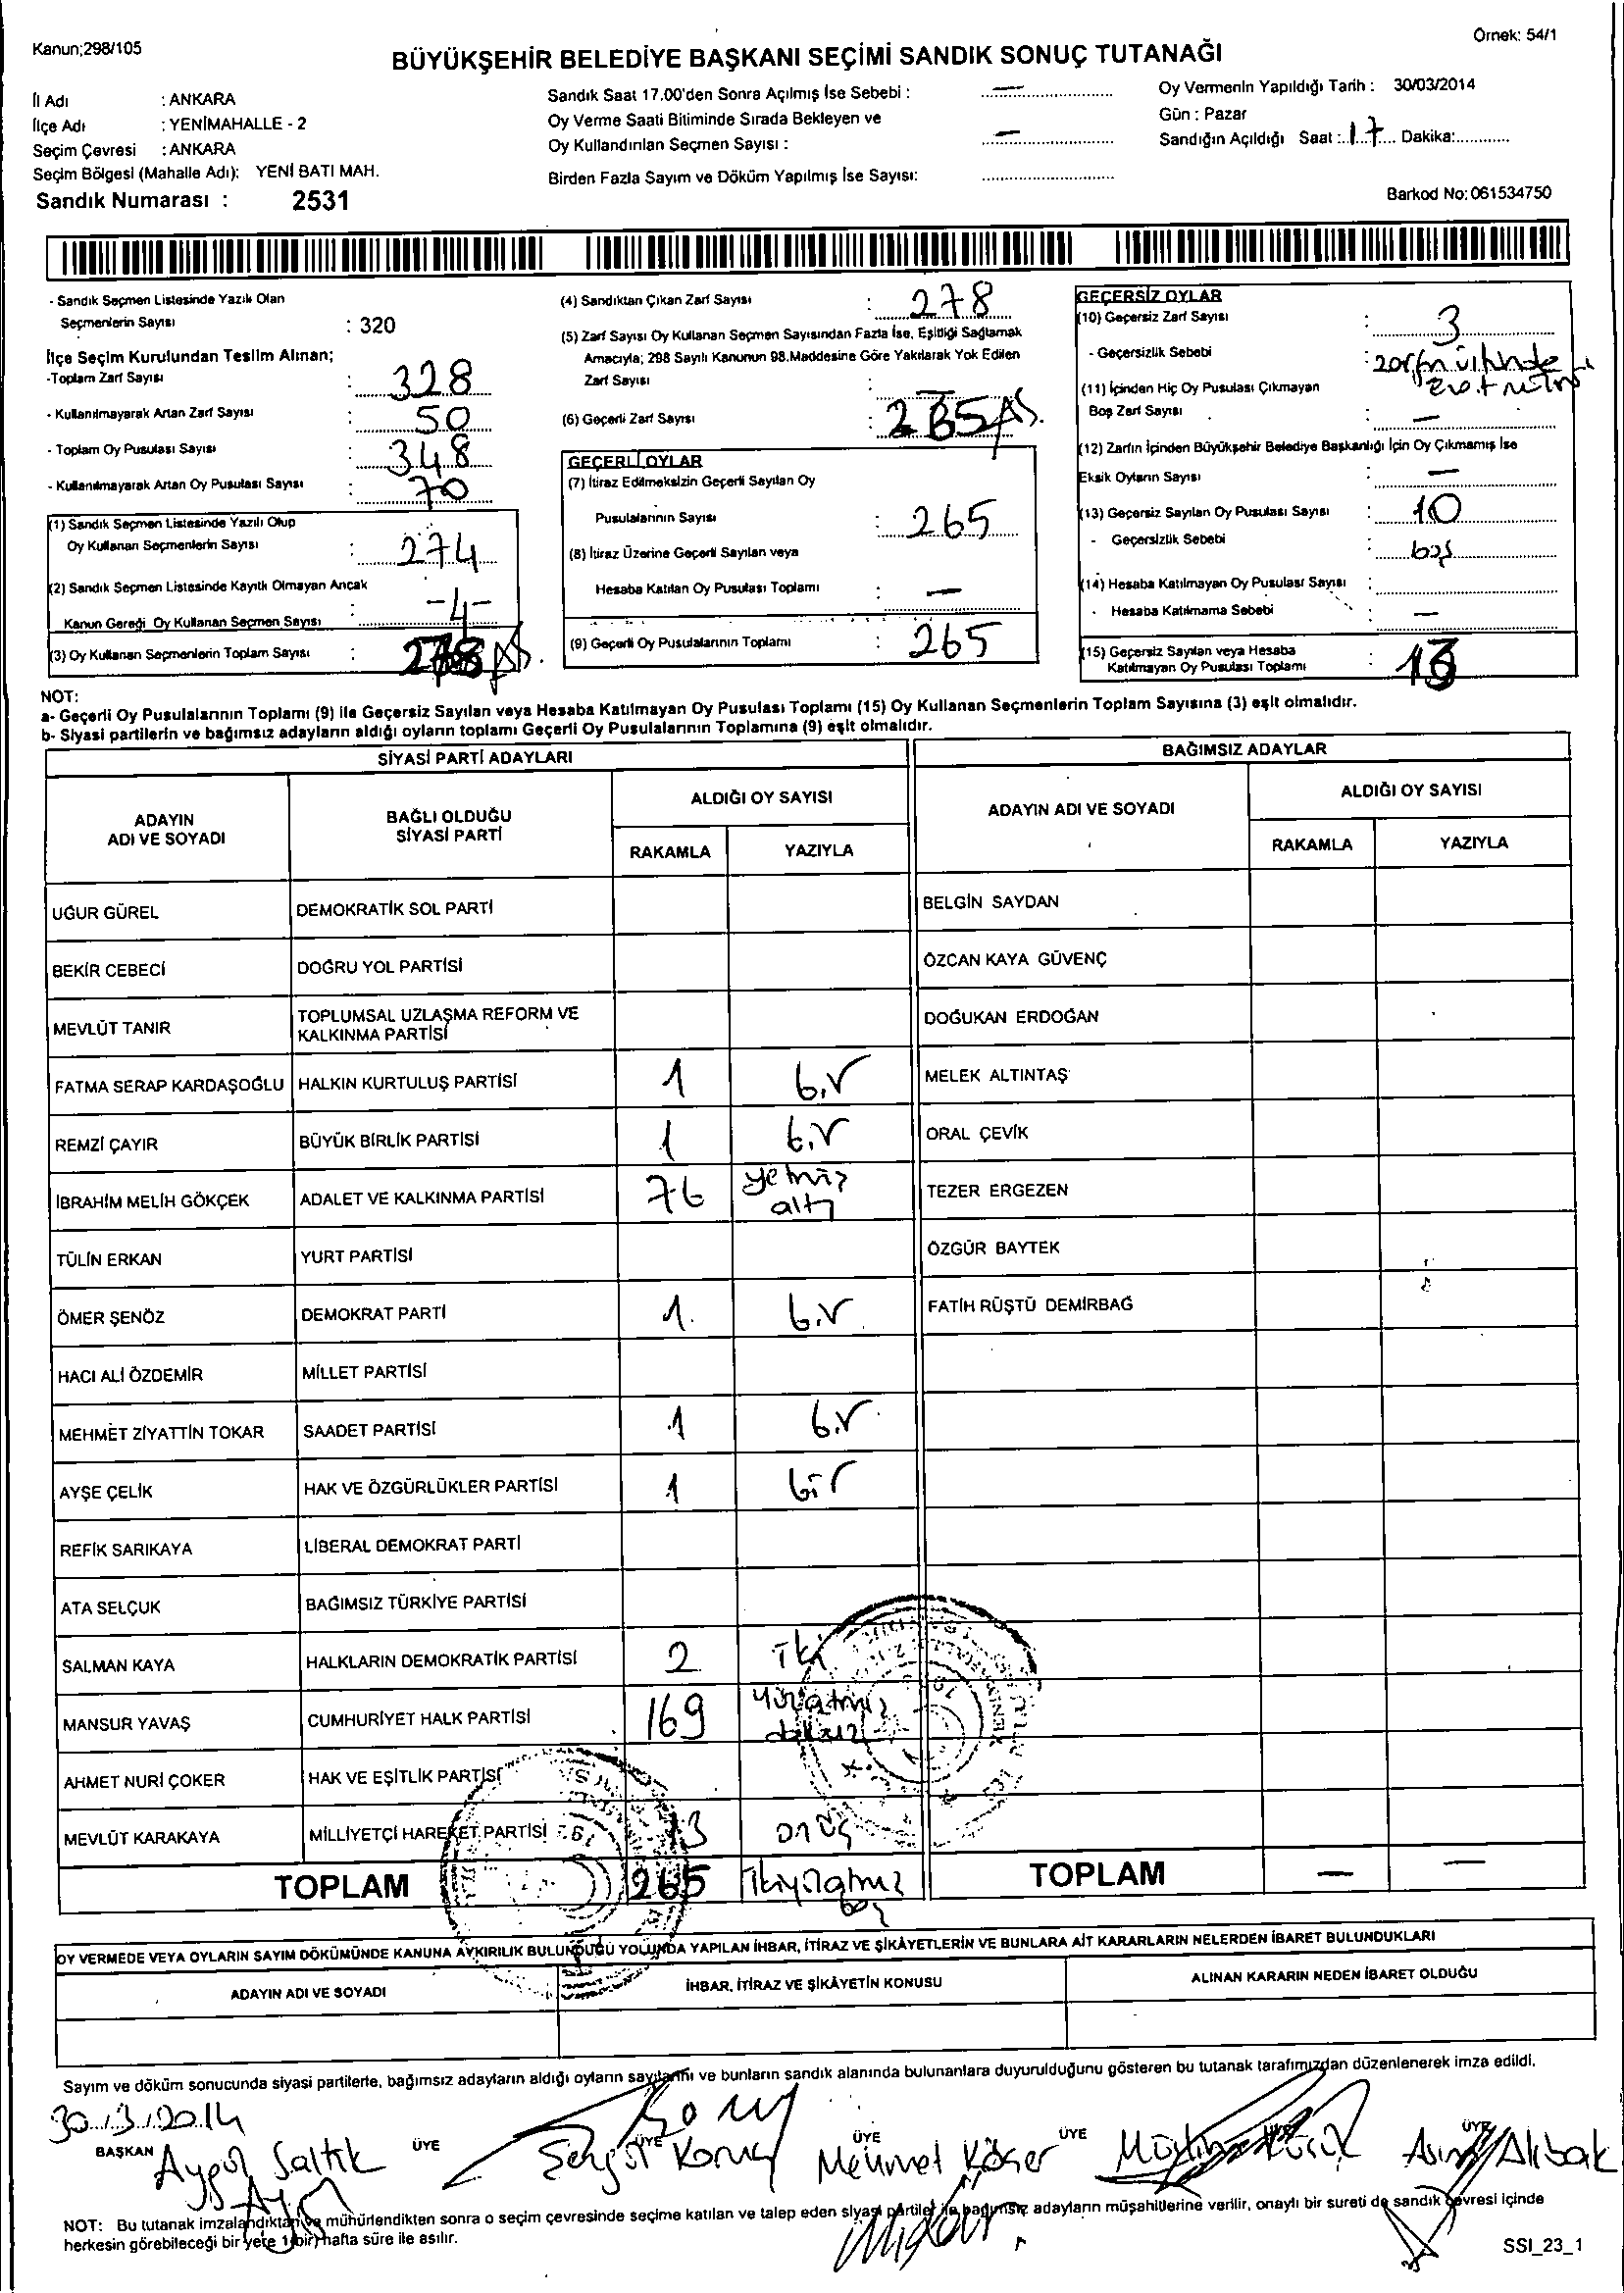 Kanun;298/105
Örnek: 54/1
BÜYÜKŞEHİR BELEDİYE BAŞKANI SEÇİMİ SANDIK SONUÇ TUTANAĞI
İl Adı : ANKARA
İlçe Adı : YENİMAHALLE - 2
Seçim Çevresi : ANKARA
Seçim Bölgesi (Mahalle Adı): YENİ BATI MAH.
Sandık Numarası : 2531
Sandık Saat 17.00'den Sonra Açılmış İse Sebebi : —
Oy Verme Saati Bitiminde Sırada Bekleyen ve
Oy Kullandırılan Seçmen Sayısı : —
Birden Fazla Sayım ve Döküm Yapılmış İse Sayısı:
Oy Vermenin Yapıldığı Tarih : 30/03/2014
Gün : Pazar
Sandığın Açıldığı Saat : 17 Dakika:
Barkod No: 061534750
- Sandık Seçmen Listesinde Yazılı Olan
Seçmenlerin Sayısı : 320
İlçe Seçim Kurulundan Teslim Alınan;
-Toplam Zarf Sayısı : 328
- Kullanılmayarak Artan Zarf Sayısı : 50
- Toplam Oy Pusulası Sayısı : 348
- Kullanılmayarak Artan Oy Pusulası Sayısı : 70
(1) Sandık Seçmen Listesinde Yazılı Olup
Oy Kullanan Seçmenlerin Sayısı : 274
(2) Sandık Seçmen Listesinde Kayıtlı Olmayan Ancak
Kanun Gereği Oy Kullanan Seçmen Sayısı : -4-
(3) Oy Kullanan Seçmenlerin Toplam Sayısı : 278
(4) Sandıktan Çıkan Zarf Sayısı : 278
(5) Zarf Sayısı Oy Kullanan Seçmen Sayısından Fazla İse, Eşitliği Sağlamak
Amacıyla; 298 Sayılı Kanunun 98.Maddesine Göre Yakılarak Yok Edilen
Zarf Sayısı : —
(6) Geçerli Zarf Sayısı : 265
GEÇERLİ OYLAR
(7) İtiraz Edilmeksizin Geçerli Sayılan Oy
Pusulalarının Sayısı : 265
(8) İtiraz Üzerine Geçerli Sayılan veya
Hesaba Katılan Oy Pusulası Toplamı : —
(9) Geçerli Oy Pusulalarının Toplamı : 265
GEÇERSİZ OYLAR
(10) Geçersiz Zarf Sayısı : 3
- Geçersizlik Sebebi :
(11) İçinden Hiç Oy Pusulası Çıkmayan
Boş Zarf Sayısı : —
(12) Zarfın İçinden Büyükşehir Belediye Başkanlığı İçin Oy Çıkmamış İse
Eksik Oyların Sayısı : —
(13) Geçersiz Sayılan Oy Pusulası Sayısı : 10
- Geçersizlik Sebebi : boş
(14) Hesaba Katılmayan Oy Pusulası Sayısı :
- Hesaba Katılmama Sebebi : —
(15) Geçersiz Sayılan veya Hesaba
Katılmayan Oy Pusulası Toplamı : 13
NOT:
a- Geçerli Oy Pusulalarının Toplamı (9) ile Geçersiz Sayılan veya Hesaba Katılmayan Oy Pusulası Toplamı (15) Oy Kullanan Seçmenlerin Toplam Sayısına (3) eşit olmalıdır.
b- Siyasi partilerin ve bağımsız adayların aldığı oyların toplamı Geçerli Oy Pusulalarının Toplamına (9) eşit olmalıdır.
SİYASİ PARTİ ADAYLARI
BAĞIMSIZ ADAYLAR
ADAYIN ADI VE SOYADI
BAĞLI OLDUĞU SİYASİ PARTİ
ALDIĞI OY SAYISI
RAKAMLA YAZIYLA
ADAYIN ADI VE SOYADI
ALDIĞI OY SAYISI
RAKAMLA YAZIYLA
UĞUR GÜREL DEMOKRATİK SOL PARTİ BELGİN SAYDAN
BEKİR CEBECİ DOĞRU YOL PARTİSİ ÖZCAN KAYA GÜVENÇ
MEVLÜT TANIR TOPLUMSAL UZLAŞMA REFORM VE KALKINMA PARTİSİ DOĞUKAN ERDOĞAN
FATMA SERAP KARDAŞOĞLU HALKIN KURTULUŞ PARTİSİ 1 bir MELEK ALTINTAŞ
REMZİ ÇAYIR BÜYÜK BİRLİK PARTİSİ 1 bir ORAL ÇEVİK
İBRAHİM MELİH GÖKÇEK ADALET VE KALKINMA PARTİSİ 76 yetmiş altı TEZER ERGEZEN
TÜLİN ERKAN YURT PARTİSİ ÖZGÜR BAYTEK
ÖMER ŞENÖZ DEMOKRAT PARTİ 1 bir FATİH RÜŞTÜ DEMİRBAĞ
HACI ALİ ÖZDEMİR MİLLET PARTİSİ
MEHMET ZİYATTİN TOKAR SAADET PARTİSİ 1 bir
AYŞE ÇELİK HAK VE ÖZGÜRLÜKLER PARTİSİ 1 bir
REFİK SARIKAYA LİBERAL DEMOKRAT PARTİ
ATA SELÇUK BAĞIMSIZ TÜRKİYE PARTİSİ
SALMAN KAYA HALKLARIN DEMOKRATİK PARTİSİ 2 iki
MANSUR YAVAŞ CUMHURİYET HALK PARTİSİ 169 yüzatmış dokuz
AHMET NURİ ÇOKER HAK VE EŞİTLİK PARTİSİ
MEVLÜT KARAKAYA MİLLİYETÇİ HAREKET PARTİSİ 13 onüç
TOPLAM 265 ikiyüzatmış beş TOPLAM — —
OY VERMEDE VEYA OYLARIN SAYIM DÖKÜMÜNDE KANUNA AYKIRILIK BULUNDUĞU YOLUNDA YAPILAN İHBAR, İTİRAZ VE ŞİKÂYETLERİN VE BUNLARA AİT KARARLARIN NELERDEN İBARET BULUNDUKLARI
ADAYIN ADI VE SOYADI İHBAR, İTİRAZ VE ŞİKÂYETİN KONUSU ALINAN KARARIN NEDEN İBARET OLDUĞU
Sayım ve döküm sonucunda siyasi partilerle, bağımsız adayların aldığı oyların sayılarını ve bunların sandık alanında bulunanlara duyurulduğunu gösteren bu tutanak tarafımızdan düzenlenerek imza edildi.
30.3.2014
BAŞKAN ÜYE ÜYE ÜYE ÜYE ÜYE
Aygül Saltık Mehmet Köser
NOT: Bu tutanak imzalandıktan ve mühürlendikten sonra o seçim çevresinde seçime katılan ve talep eden siyasi partiler ile bağımsız adayların müşahitlerine verilir, onaylı bir sureti de sandık çevresi içinde
herkesin görebileceği bir yere 1(bir) hafta süre ile asılır.
SSI_23_1